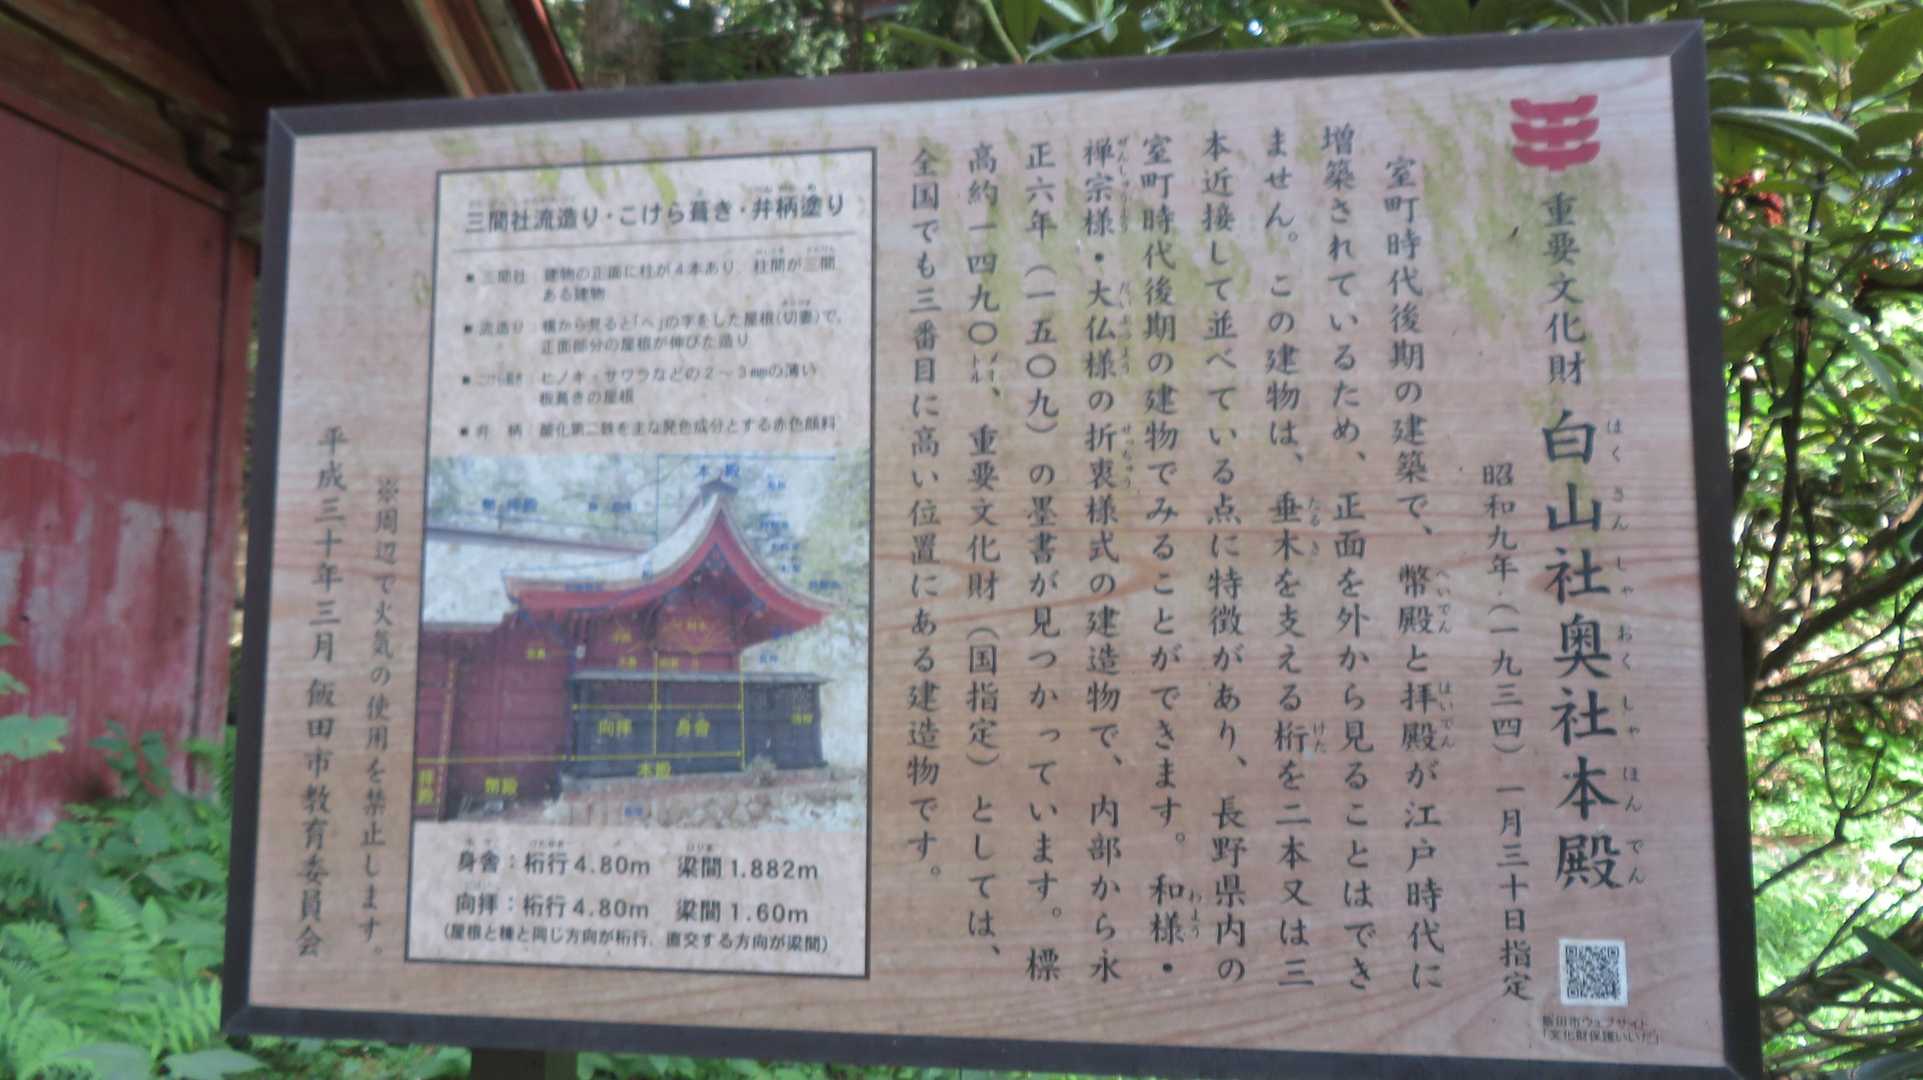 重要文化財 白山社奥社本殿
はくさんしゃおくしゃほんでん
昭和九年(一九三四)一月三十日指定
室町時代後期の建築で、幣殿と拝殿が江戸時代に
へいでん はいでん
増築されているため、正面を外から見ることはでき
ません。この建物は、垂木を支える桁を二本又は三
たるき けた
本近接して並べている点に特徴があり、長野県内の
室町時代後期の建物でみることができます。和様・
わよう
禅宗様・大仏様の折衷様式の建造物で、内部から永
ぜんしゅうよう だいぶつよう せっちゅう
正六年(一五〇九)の墨書が見つかっています。標
高約一四九〇メートル、重要文化財(国指定)としては、
全国でも三番目に高い位置にある建造物です。
三間社流造り・こけら葺き・弁柄塗り
■三間社 建物の正面に柱が4本あり、柱間が三間
ある建物
■流造り:横から見ると「へ」の字をした屋根(切妻)で、
正面部分の屋根が伸びた造り
■こけら葺き:ヒノキ・サワラなどの2～3㎜の薄い
板葺きの屋根
■弁柄:酸化第二鉄を主な発色成分とする赤色顔料
本殿
向拝 身舎
本殿
幣殿
拝殿
身舎:桁行4.80m 梁間1.882m
向拝:桁行4.80m 梁間1.60m
(屋根と棟と同じ方向が桁行、直交する方向が梁間)
※周辺で火気の使用を禁止します。
平成三十年三月 飯田市教育委員会
飯田市ウェブサイト
「文化財保護いいだ」